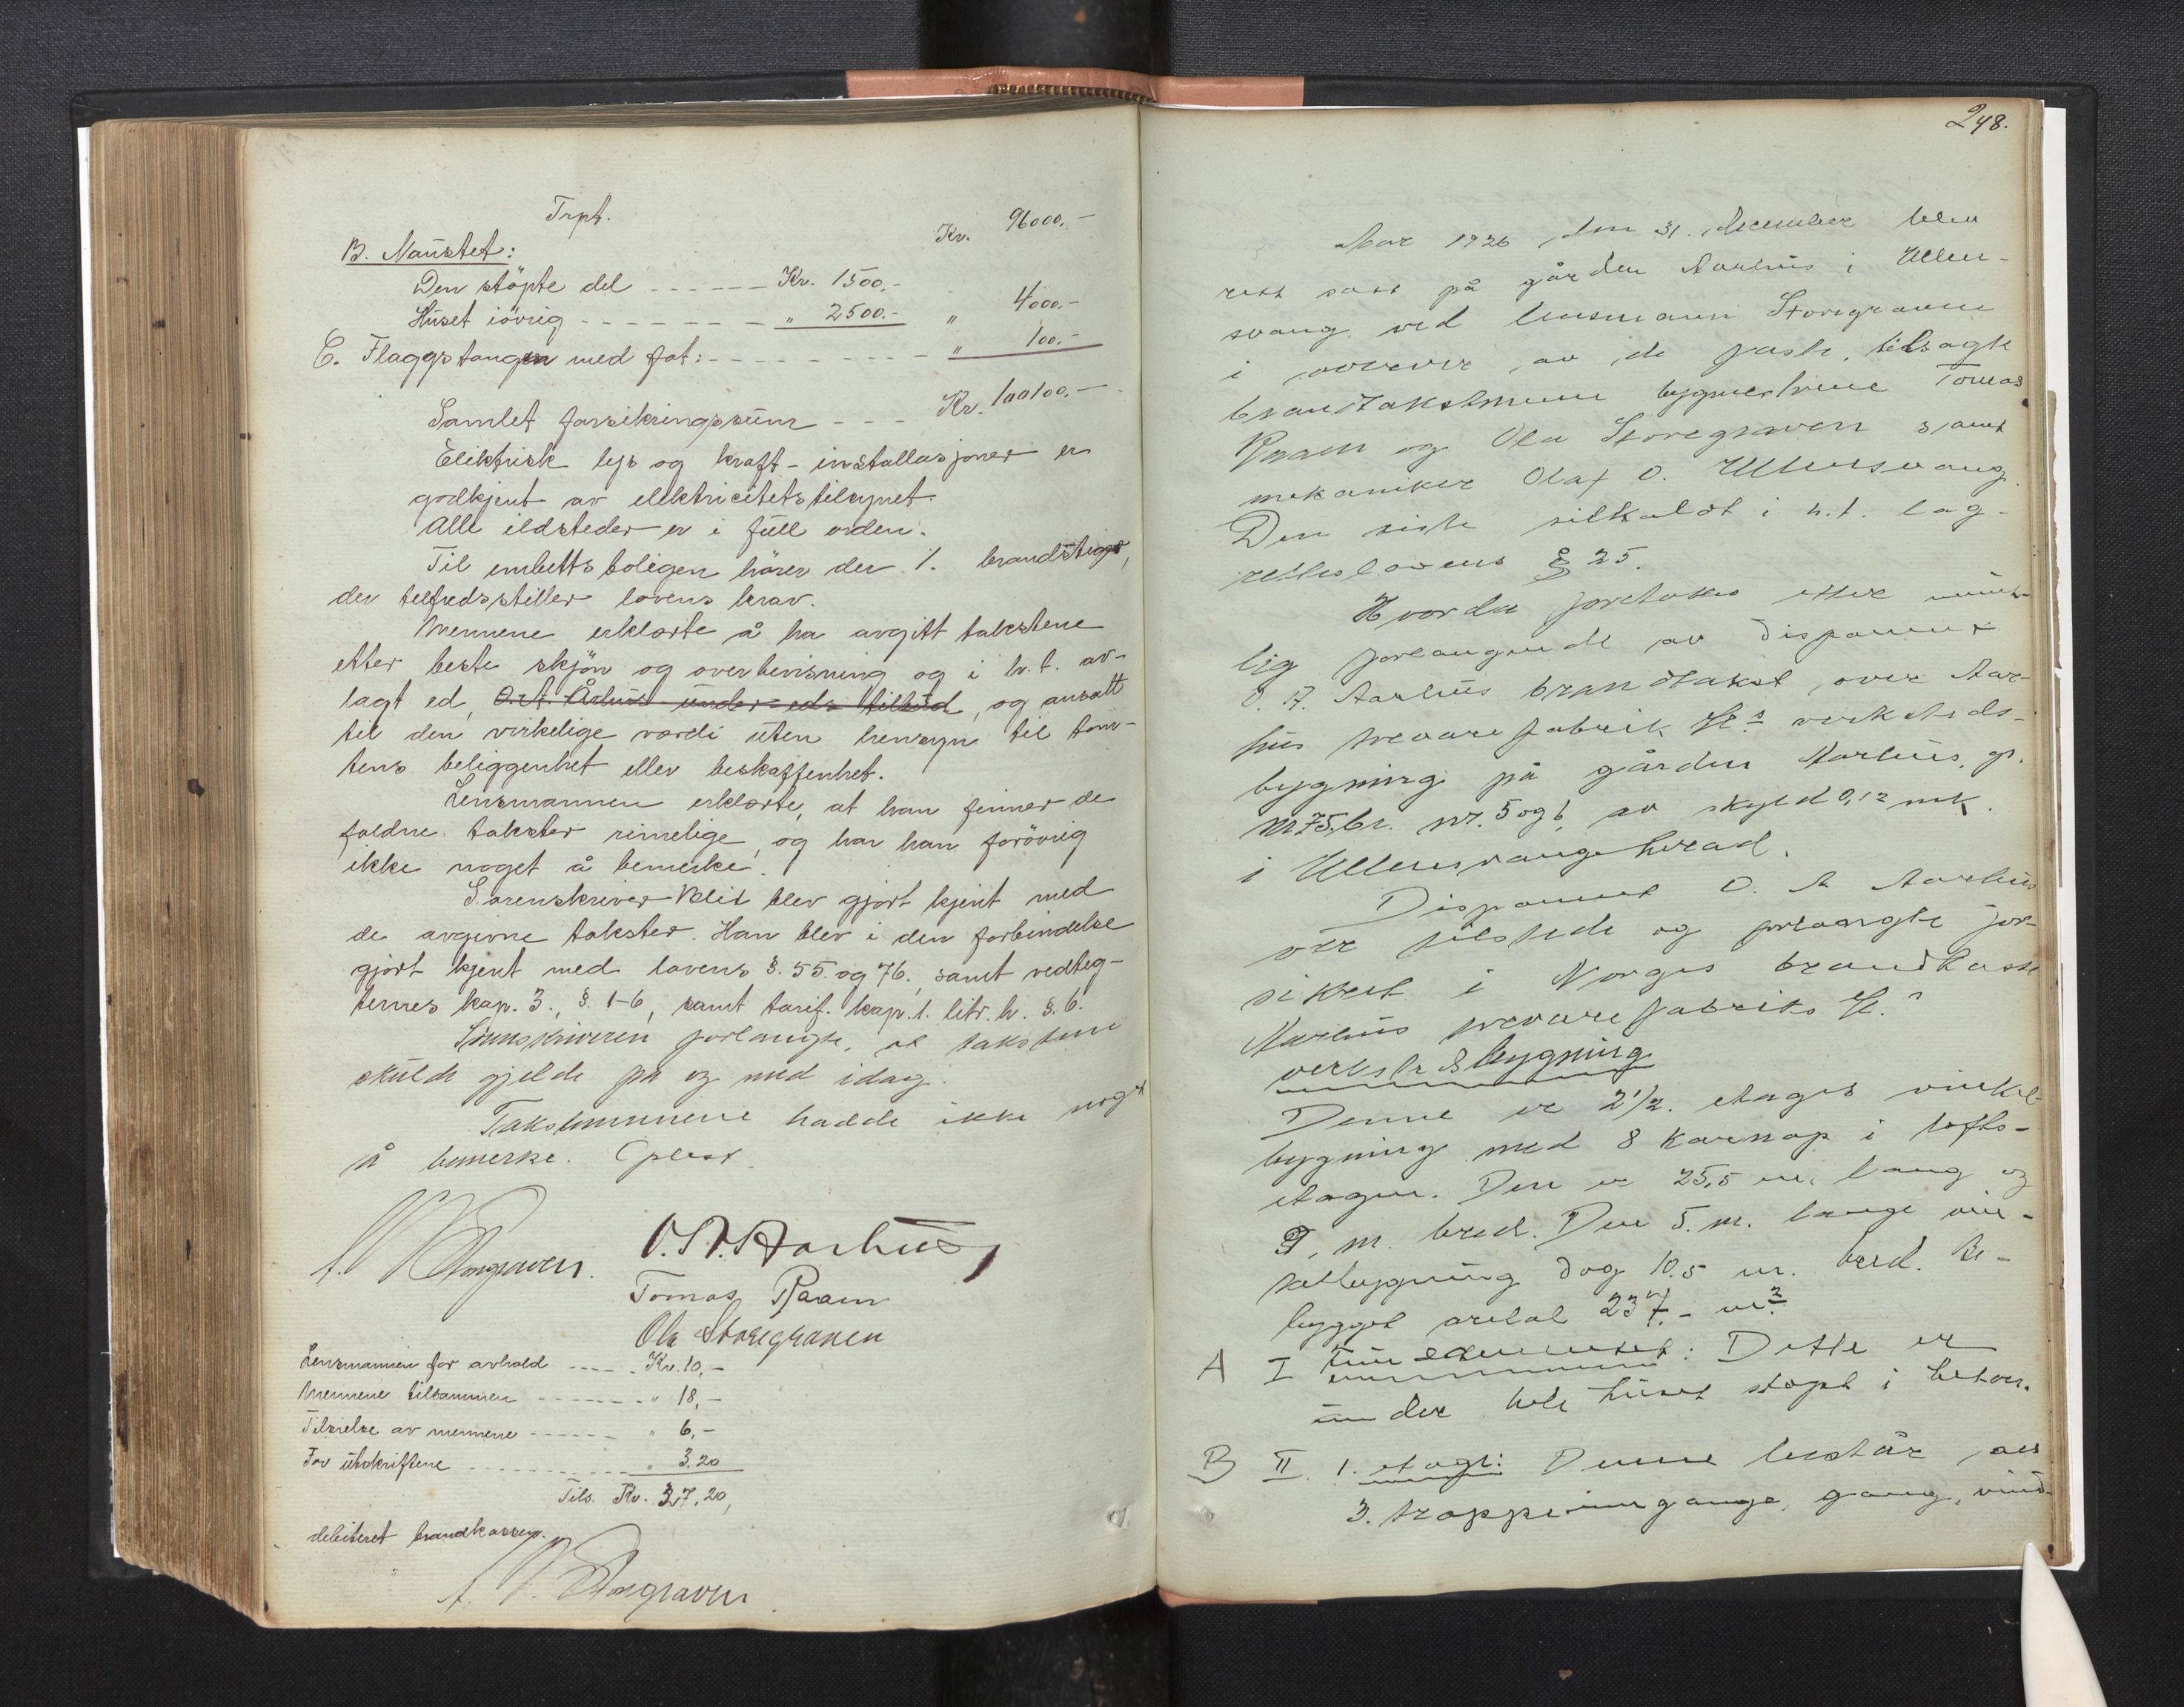 Trpt. Kr. 96000.-
B. Naustet:
Den støpte del ------ Kr. 1500.-
Huset iøvrig ------- " 2500.- " 4000.-
C. Flaggstangen med fot: -------- " 100.-
Samlet forsikringssum --- Kr. 100100.-
Elektrisk lys og kraft-installasjoner er
godkjent av elektricitetstilsynet.
Alle ildsteder er i full orden.
Til embettsboligen hører der 1. brandstige,
der tilfredsstiller lovens krav.
Mennene erklærte å ha avgitt takstene
etter beste skjøn og overbevisning og i h.t. av-
lagt ed, O.A. Århus under eds tilbud, og ansatt
til den virkelige værdi uten hensyn til tom-
tens beliggenhet eller beskaffenhet.
Lensmannen erklærte, at han finner de
faldne takster rimelige, og har han forøvrig
ikke noget å bemerke.
Sorenskriver Blit blev gjort kjent med
de avgivne takster. Han blev i den forbindelse
gjort kjent med lovens §. 55. og 76., samt vedteg-
ternes kap. 3., §. 1-6, samt tarif. kap. 1. litr. h. §. 6.
Sorenskriveren forlangte, at taksten
skulde gjelde på og med idag.
Takstmennene hadde ikke noget
å bemerke. Oplest.
Storegraven. O. A. Aarhus
Tomas Raam
Ola Storegraven
Lensmannen for avhold ---- Kr. 10,-
Mennene tilsammen ------- " 18,-
Tilsielse av mennene ------ " 6,-
For utskriftene --------- " 3.20
Tils. Kr. 37,20,
debiteret brandkassen.
Storegraven
248.
Aar 1926 den 31. december blev
rett satt på gården Aarhus i Ullen-
svang, ved lensmann Storegraven
i overvær av de faste, tilsagte
brandtakstmenn bygmestrene Tomas
Raam og Ola Storegraven samt
mekaniker Olaf O. Ullensvang.
Den siste tilkaldt i h.t. lag-
rettelovens § 25.
Hvorda foretokes etter munt-
lig forlangende av disponent
O. A. Aarhus brandtakst over Aar-
hus trevarefabrik A/s verksteds-
bygning på gården Aarhus, gr.
nr 75, br. nr. 5 og 6, av skyld 0,12 mk.
i Ullensvang herad.
Disponent O. A Aarhus
var tilstede og forlangte for-
sikret i Norges brandkasse
Aarhus trevarefabriks A/s
verkstedsbygning
Denne er 2 1/2. etages vinkel-
bygning med 8 karnap i lofts-
etagen. Den er 25,5 m. lang og
9, m. bred. Den 5. m. lange vin-
kelbygning dog 10.5 m. bred. Be-
bygget areal 237.- m²
A I Fundamentet: Dette er
under hele huset støpt i betong.
B II. 1. etage: Denne består av
3. trappeinngange, gang, vind-